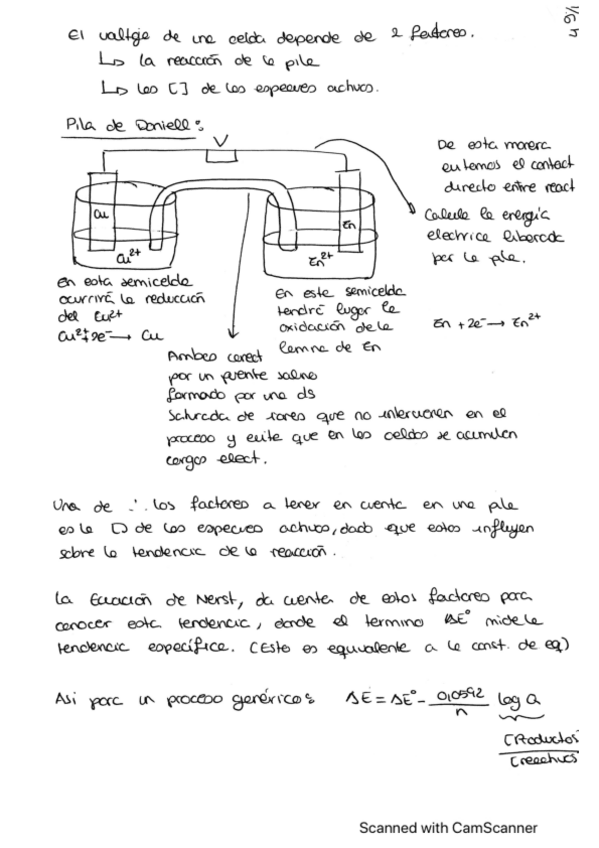 El valtaje de una celda depende de 2 factores.
↳ la reacción de la pila
↳ las [] de las especies activas.
Pila de Daniell:
V
De esta manera
evitamos el contact
directo entre react
Calcula la energía
electrica liberada
por la pila.
Cu
Zn
Cu²⁺
Zn²⁺
En esta semicelda
ocurrirá la reducción
del Cu²⁺
Cu²⁺+2e⁻ → Cu
En este semicelda
tendrá lugar la
oxidación de la
lamina de Zn
Zn + 2e⁻ → Zn²⁺
Ambas conect
por un puente salino
formado por una ds
saturada de iones que no intervienen en el
proceso y evita que en las celdas se acumulen
cargas elect.
Una de ∴ los factores a tener en cuenta en una pila
es la [] de las especies activas, dado que estas influyen
sobre la tendencia de la reacción.
La Ecuación de Nerst, da cuenta de estos factores para
conocer esta tendencia, donde el termino ΔE° mide la
tendencia específica. (Esto es equivalente a la const. de eq)
Asi para un proceso genérico: ΔE = ΔE° - 0,0592/n log Q
[Productos
[reactivos
Scanned with CamScanner